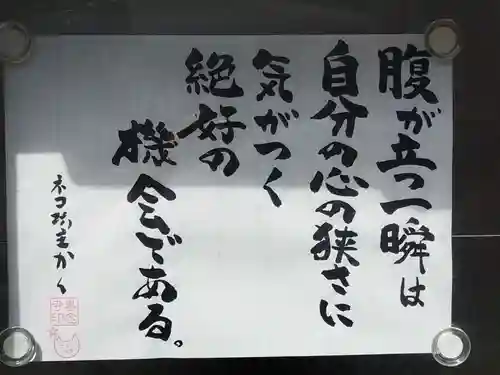 腹が立つ一瞬は
自分の心の狭さに
気がつく
絶好の
機会である。
ネコ坊主かく